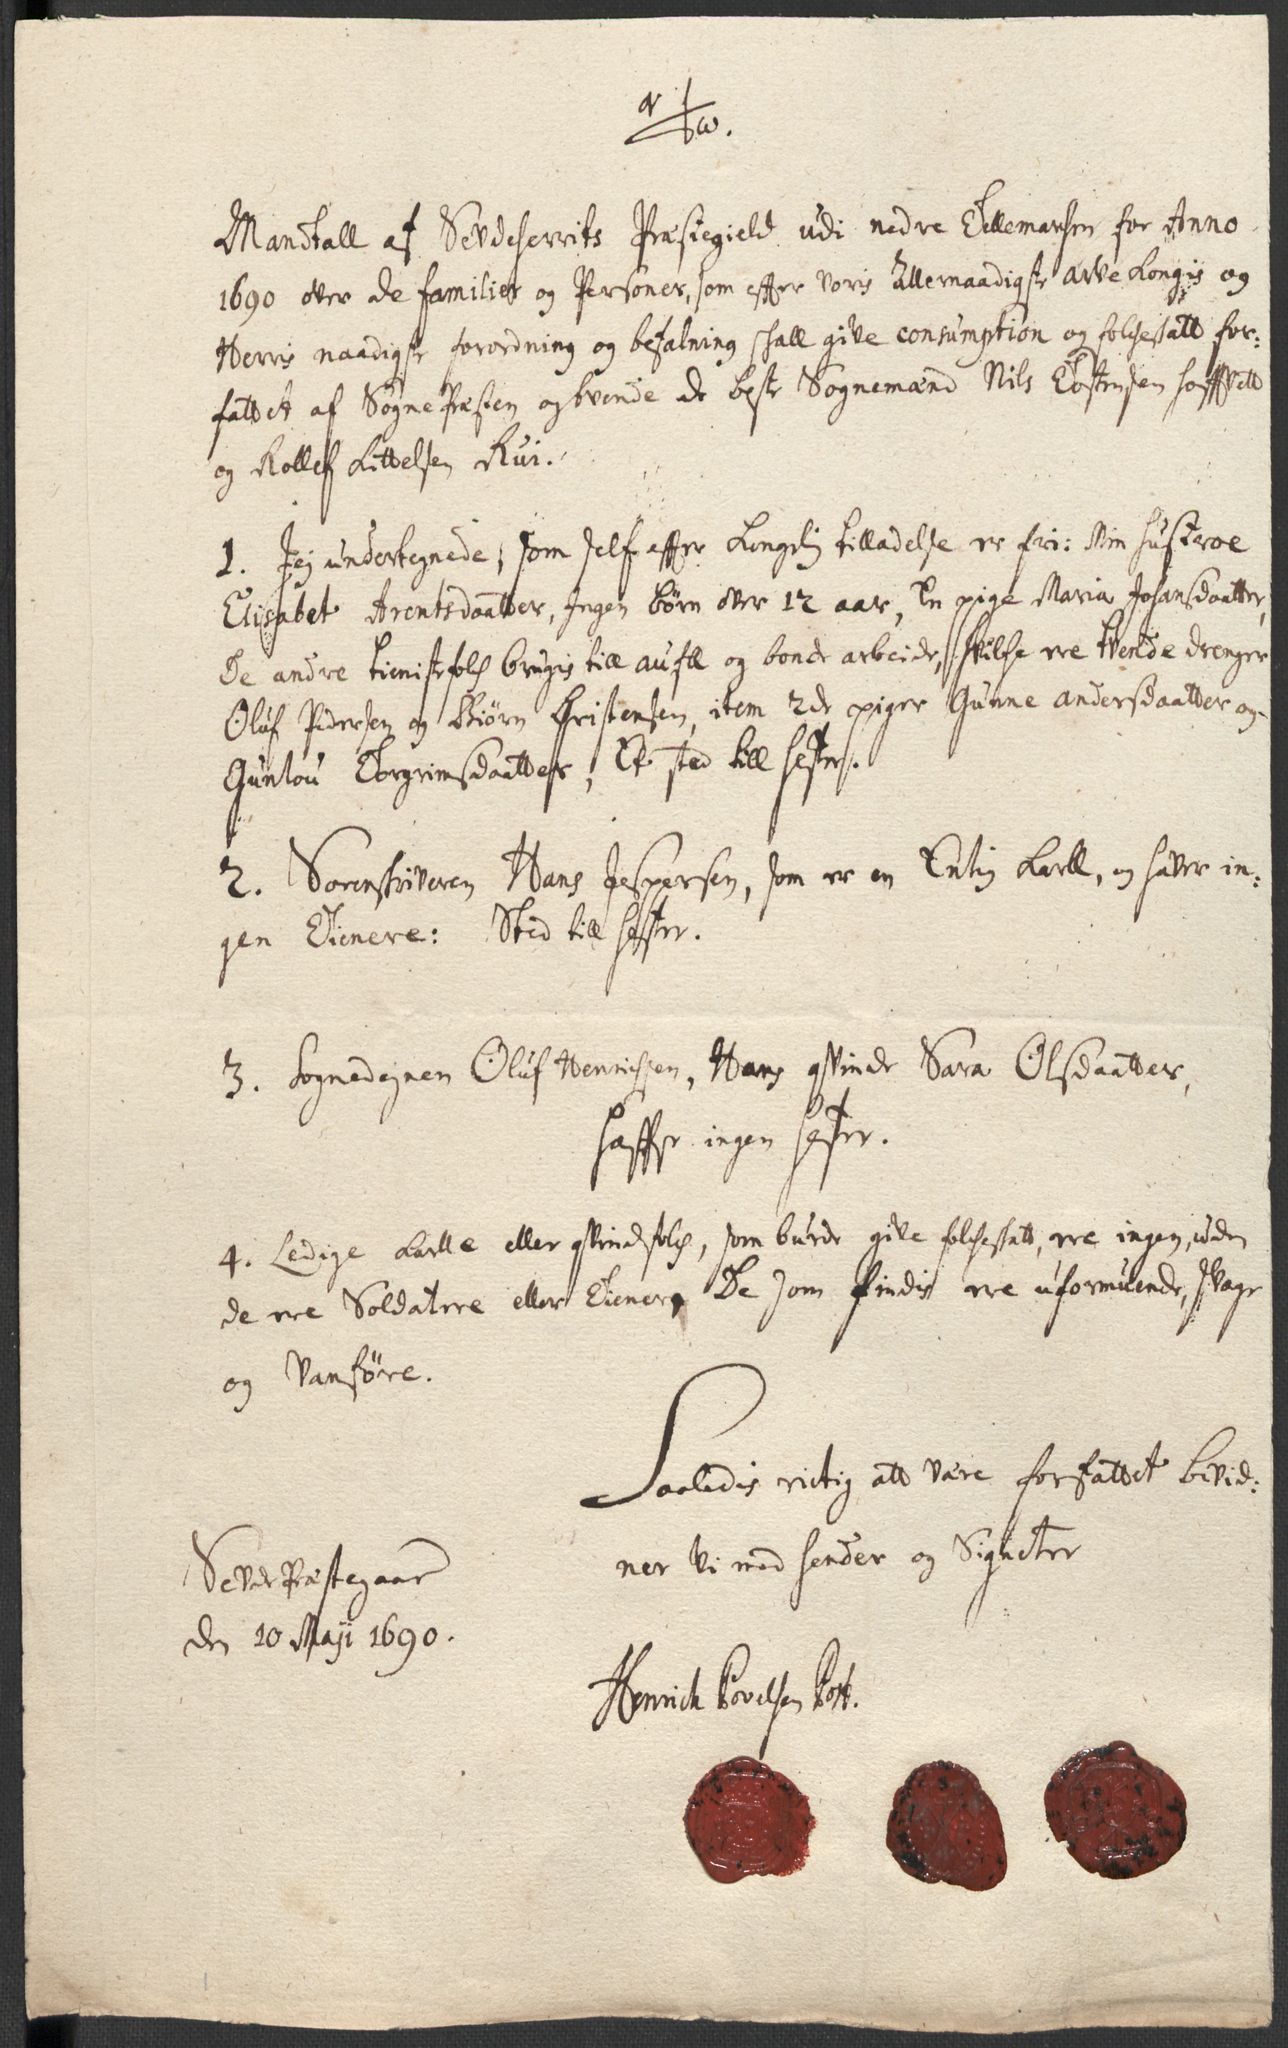 α ω.
Mandtall af Sevdeherrits Præstegield udi nedre Tellemarken for Anno
1690 over de familier og Personer, som effter voris Allernaadigste arve Kongis og
Herris naadigste forordning og befalning skall give consumption og folcheskatt for:
fattet af Sognepræsten og tvende de beste Sognemænd Nils Tostensen
og Rollef Kittelsen Rui.
1. Jeg undertegnede, som self effter Kongelig tilladelse er fri: Min Husteroe
Elisabet Arentsdaatter, Ingen børn over 12 aar, En pige Maria Johansdaatter,
De andre tienistefolch brugis till aufll og bonde arbeide, som ere tvende drenger
Oluf Pedersen og Biörn Christensen, item 2de piger Gunne andersdaatter og
Gunlou Torgrimsdaatter, Et sted till hester.
2. Sorenskriveren Hans Jespersen, som er en Enlig Karll, og haver in:
gen Tienere: Sted till hester.
3. Sognedegnen Oluf Henrichsen, Hans qvinde Sara Olsdaatter,
haffver ingen hester.
4. Ledige karlle eller qvindfolch, som burde give folcheskatt, ere ingen, uden
de ere Soldatere eller Tienere, De som findis ere uformuende, svage
og Vanföre.
Saaledis rictig att være forfattet bevid:
ner vi med hender og Signeter
Sevde Præstegaar
den 10 Maji 1690.
Henrich Povelsen